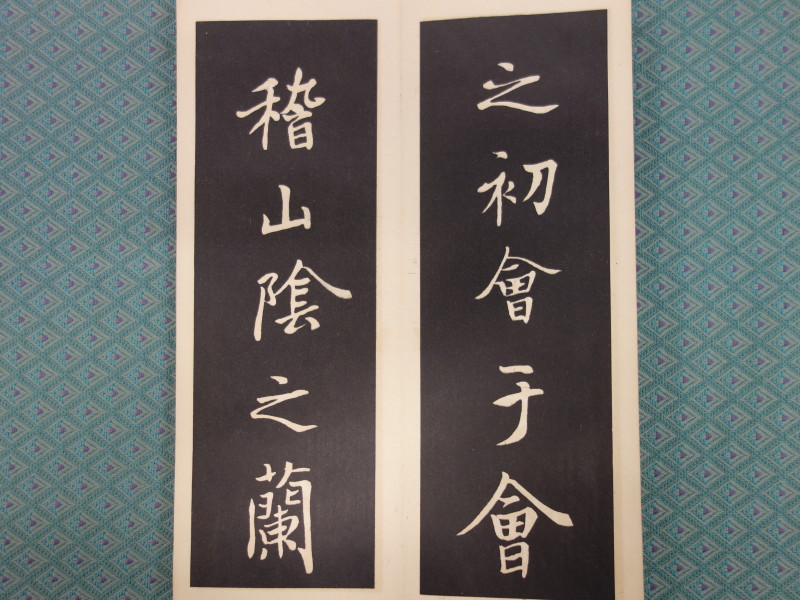 之初會于會
稽山陰之蘭